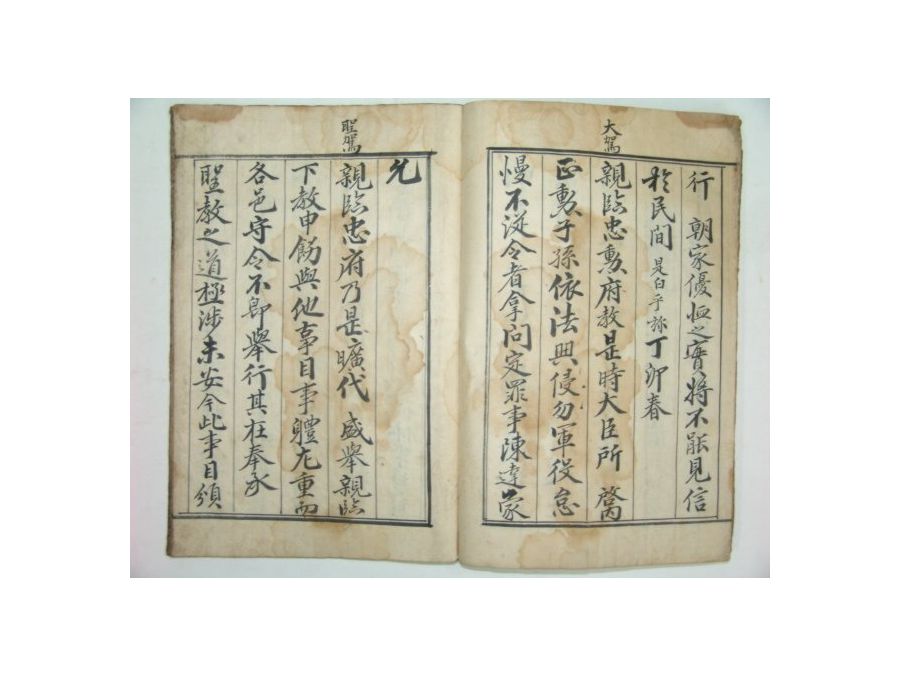 行 朝家優恤之實將不能見信
於民間是白乎旀丁卯春
大駕
親臨忠勳府敎是時大臣所 啓內
正勳子孫依法典侵勿軍役怠
慢不從令者拿問定罪事陳達蒙
允
聖駕
親臨忠府乃是曠代 盛擧親臨
下敎申飭與他事目事體尤重而
各邑守令不卽擧行其在奉承
聖敎之道極涉未安今此事目頒